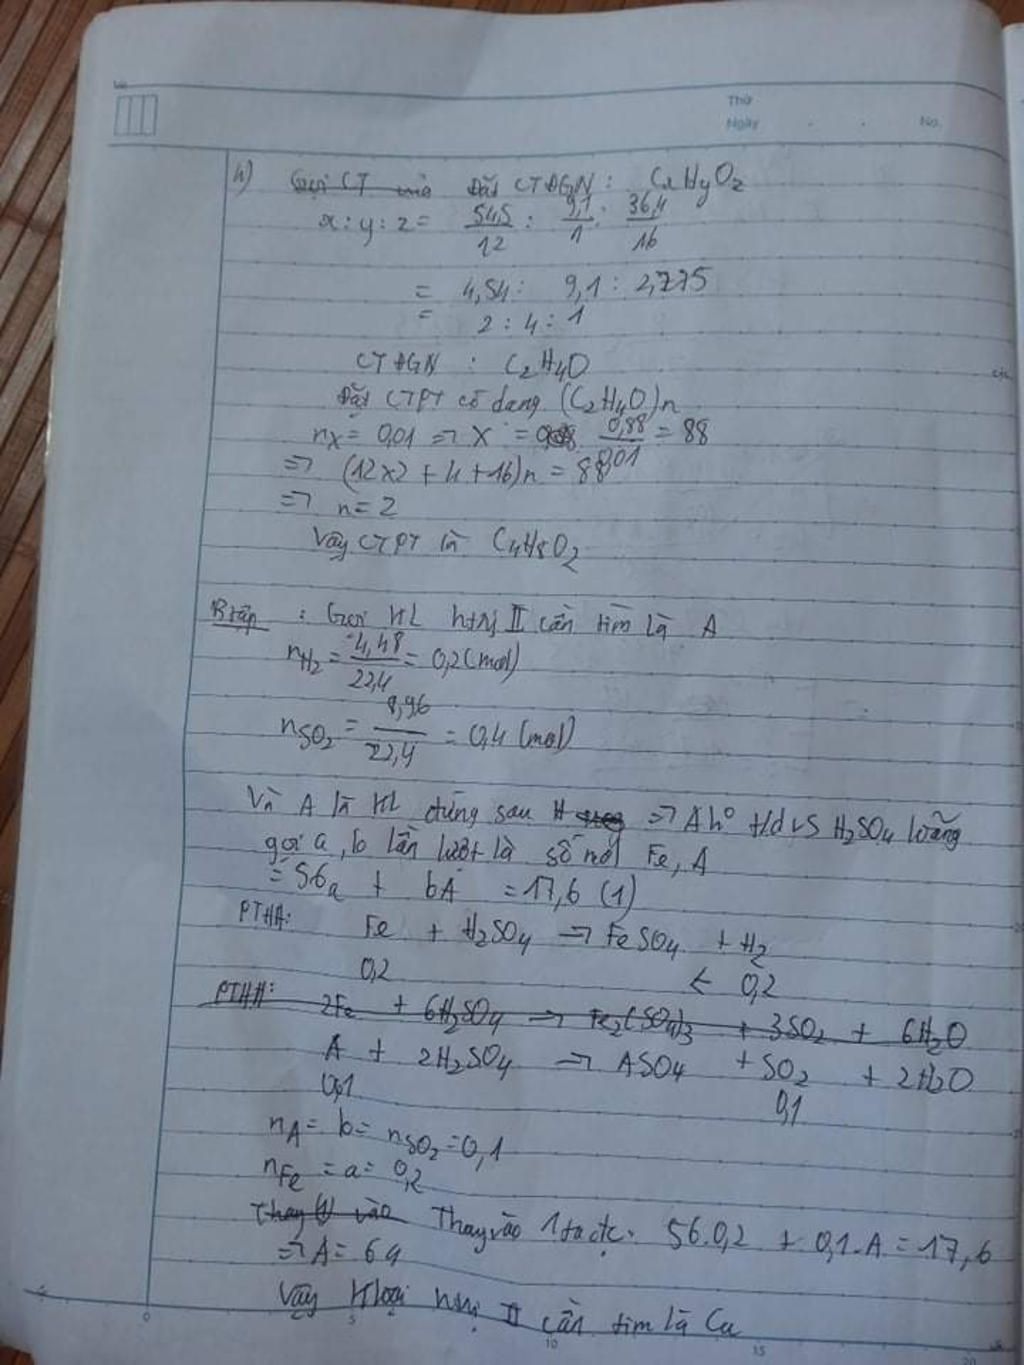 Thứ
Ngày . . No.
h) Gọi CT Đặt CTĐGN : CxHyOz
x : y : z = 54,5/12 : 9,1/1 : 36,4/16
= 4,54 : 9,1 : 2,275
= 2 : 4 : 1
CTĐGN : C2H4O
Đặt CTPT có dạng (C2H4O)n
nx = 0,01 => X = 0,88/0,01 = 88
=> (12x2 + 4 + 16)n = 88
=> n = 2
Vậy CTPT là C4H8O2
Btập : Gọi KL htrị II cần tìm là A
nH2 = 4,48/22,4 = 0,2 (mol)
nSO2 = 8,96/22,4 = 0,4 (mol)
Vì A là KL đứng sau H => A ko t/d vs H2SO4 loãng
gọi a, b lần lượt là số mol Fe, A
= 56a + bA = 17,6 (1)
PTHH: Fe + H2SO4 => FeSO4 + H2
0,2 ← 0,2
PTHH: 2Fe + 6H2SO4 => Fe2(SO4)3 + 3SO2 + 6H2O
A + 2H2SO4 => ASO4 + SO2 + 2H2O
0,1 0,1
nA = b = nSO2 = 0,1
nFe = a = 0,2
Thay (1) vào Thay vào 1 ta đc. 56.0,2 + 0,1.A = 17,6
=> A = 64
Vậy Kloại htrị II cần tìm là Cu
0 5 10 15 20